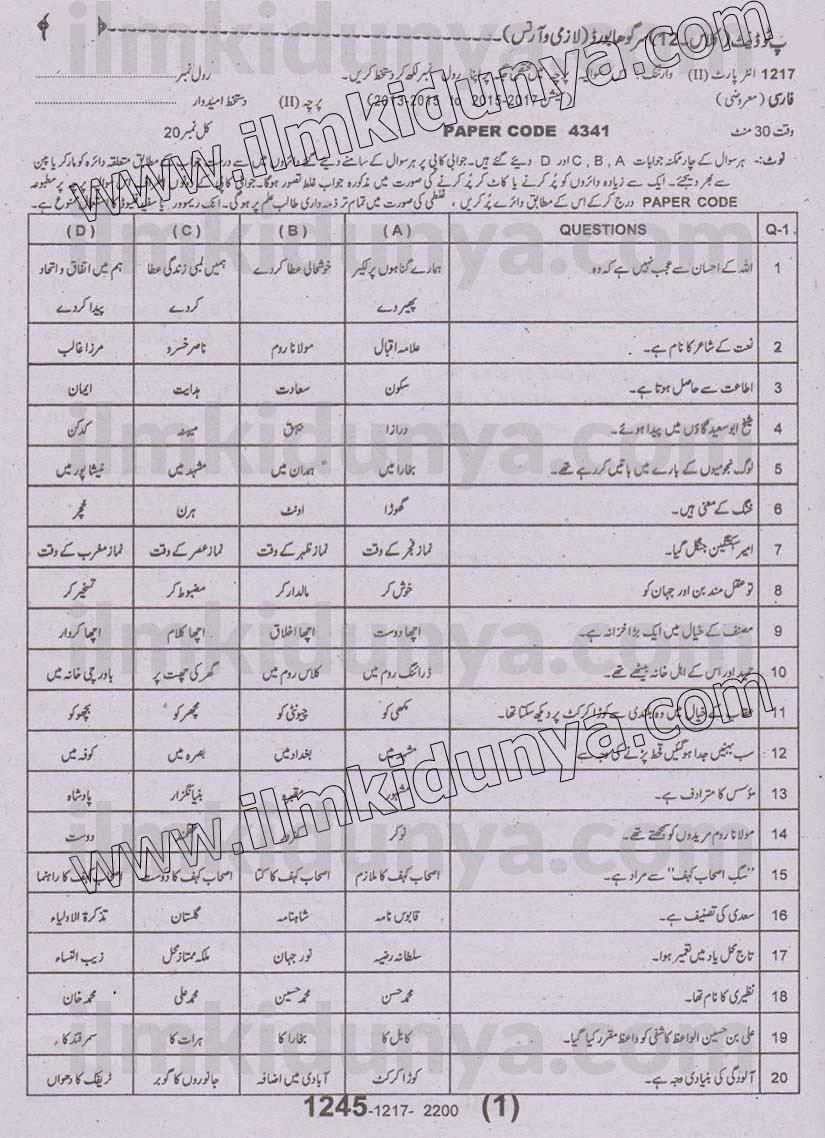 پ ٹو ڈیٹ (کلاس ۔ 12) سرگودھا بورڈ (لازمی و آرٹس)
1217 انٹر پارٹ (II) وارننگ: اس سوالیہ پرچہ میں اپنا رول نمبر لکھ کر دستخط کریں۔ رول نمبر
فارسی (معروضی) (سیشن 2013-2015 to 2015-2017) پرچہ (II) دستخط امیدوار
وقت 30 منٹ PAPER CODE 4341 کل نمبر 20
نوٹ:۔ ہر سوال کے چار ممکنہ جوابات A , B , C اور D دیئے گئے ہیں۔ جوابی کاپی پر ہر سوال کے سامنے دیئے گئے دائروں میں سے درست جواب کے مطابق متعلقہ دائرہ کو مارکر یا پین
سے بھر دیجئے۔ ایک سے زیادہ دائروں کو پُر کرنے یا کاٹ کر پُر کرنے کی صورت میں مذکورہ جواب غلط تصور ہوگا۔ جوابی کاپی کے پر مطبوعہ
PAPER CODE درج کرکے اس کے مطابق دائرے پُر کریں ، غلطی کی صورت میں تمام تر ذمہ داری طالب علم پر ہوگی۔ انک ریموور یا سفید فلیوڈ کا استعمال ممنوع ہے۔
Q-1 QUESTIONS (A) (B) (C) (D)
1 اللہ کے احسان سے عجب نہیں ہے کہ وہ ہمارے گناہوں پر لکیر خوشحالی عطا کردے ہمیں لمبی زندگی عطا ہم میں اتفاق و اتحاد
پھیر دے کر دے پیدا کردے
2 نعت کے شاعر کا نام ہے۔ علامہ اقبال مولانا روم ناصر خسرو مرزا غالب
3 اطاعت سے حاصل ہوتا ہے۔ سکون سعادت ہدایت ایمان
4 شیخ ابوسعید گاؤں میں پیدا ہوئے۔ درازا بیہق میہنہ کدکن
5 لوگ نجومیوں کے بارے میں باتیں کررہے تھے۔ بخارا میں ہمدان میں مشہد میں نیشاپور میں
6 خنگ کے معنی ہیں۔ گھوڑا اونٹ ہرن خچر
7 امیر سبکتگین جنگل گیا۔ نماز فجر کے وقت نماز ظہر کے وقت نماز عصر کے وقت نماز مغرب کے وقت
8 تو عقل مند بن اور جہان کو خوش کر مالدار کر مضبوط کر تسخیر کر
9 مصنف کے خیال میں ایک بڑا خزانہ ہے۔ اچھا دوست اچھا اخلاق اچھا کلام اچھا کردار
10 حمید اور اس کے اہل خانہ بیٹھے تھے۔ ڈرائنگ روم میں کلاس روم میں گھر کی چھت پر باورچی خانہ میں
11 عقاب کے خیال میں وہ بلندی سے کوڑا کرکٹ پر دیکھ سکتا تھا۔ مکھی کو چیونٹی کو مچھر کو بچھو کو
12 سب بہنیں جدا ہوگئیں قحط پڑنے کی وجہ سے مشہد میں بغداد میں بصرہ میں کوفہ میں
13 مؤسس کا مترادف ہے۔ مشہور مقبرہ بنیانگزار پادشاہ
14 مولانا روم مریدوں کو سمجھتے تھے۔ نوکر دوست
15 "سگِ اصحاب کہف" سے مراد ہے۔ اصحاب کہف کا ملازم اصحاب کہف کا کتا اصحاب کہف کا دوست اصحاب کہف کا راہنما
16 سعدی کی تصنیف ہے۔ قابوس نامہ شاہنامہ گلستان تذکرۃ الاولیاء
17 تاج محل یاد میں تعمیر ہوا۔ سلطانہ رضیہ نور جہان ملکہ ممتاز محل زیب النساء
18 نظیری کا نام تھا۔ محمد حسن محمد حسین محمد علی محمد خان
19 علی بن حسین الواعظ کاشفی کو واعظ مقرر کیا گیا۔ کابل کا بخارا کا ہرات کا سمرقند کا
20 آلودگی کی بنیادی وجہ ہے۔ کوڑا کرکٹ آبادی میں اضافہ جانوروں کا گوبر ٹریفک کا دھواں
1245-1217- 2200 (1)
www.ilmkidunya.com
www.ilmkidunya.com
ilmkidunya.com
ilmkidunya.com
ilmkidunya.com
ilmkidunya.com
ilmkidunya.com
ilmkidunya.com